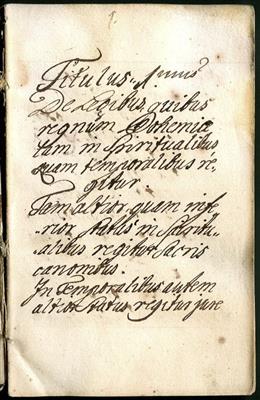 1.
Titulus. 1mus
De Legibus quibus
regnum Bohemiæ
tam in Spiritualibus
quam temporalibus re,
gitur.
Tam altior quam infe,
rior status in Spiritu,
alibus regitur Sacris
canonibus.
In Temporalibus autem
altior status regitur jure